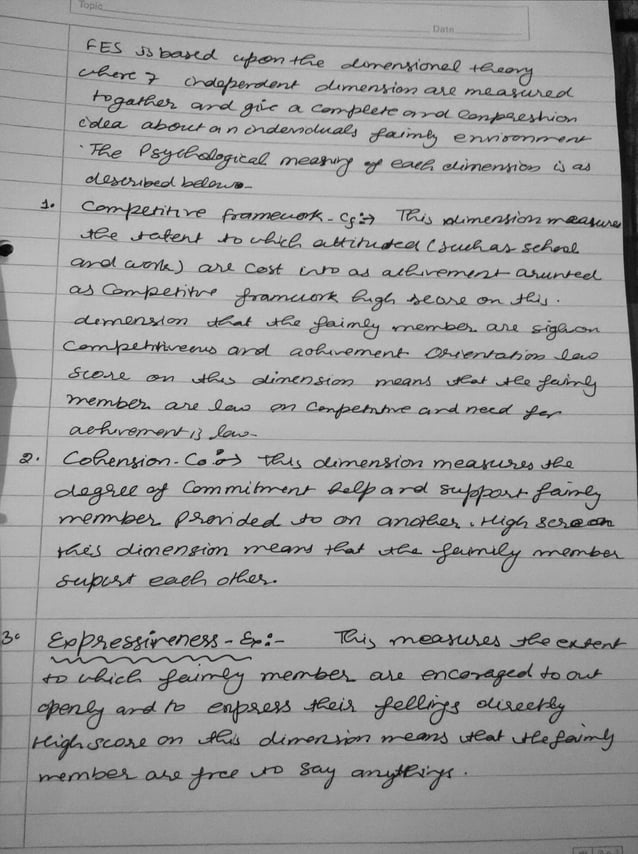 Topic
Date
FES is based upon the dimensional theory
where 7 independent dimension are measured
togather and give a complete and conpreshion
idea about an indeviduals faimly environment
The Psychological meaning of each dimension is as
described below-
1. Competitive framework - Cf :→ This dimension measure
the extent to which attituded (such as school
and work) are cost into as achivement arunted
as Competitve framework high score on this.
dimension that the faimly member are sigh on
Competitiveeus and achivement Orientation low
score on this dimension means that the faimly
member are low on Conpetetive and need for
achivement is low-
2. Cohension - Co :→ This dimension measures the
degree of Commitment help and support faimly
member Provided to on another. High score on
this dimension means that the faimily member
suport each other.
3. Expressireness - Ex :- This measures the extent
to which faimly member are encoraged to out
openly and to enpress their fellings directly
High score on this dimension means that the faimly
member are free to say anythings.